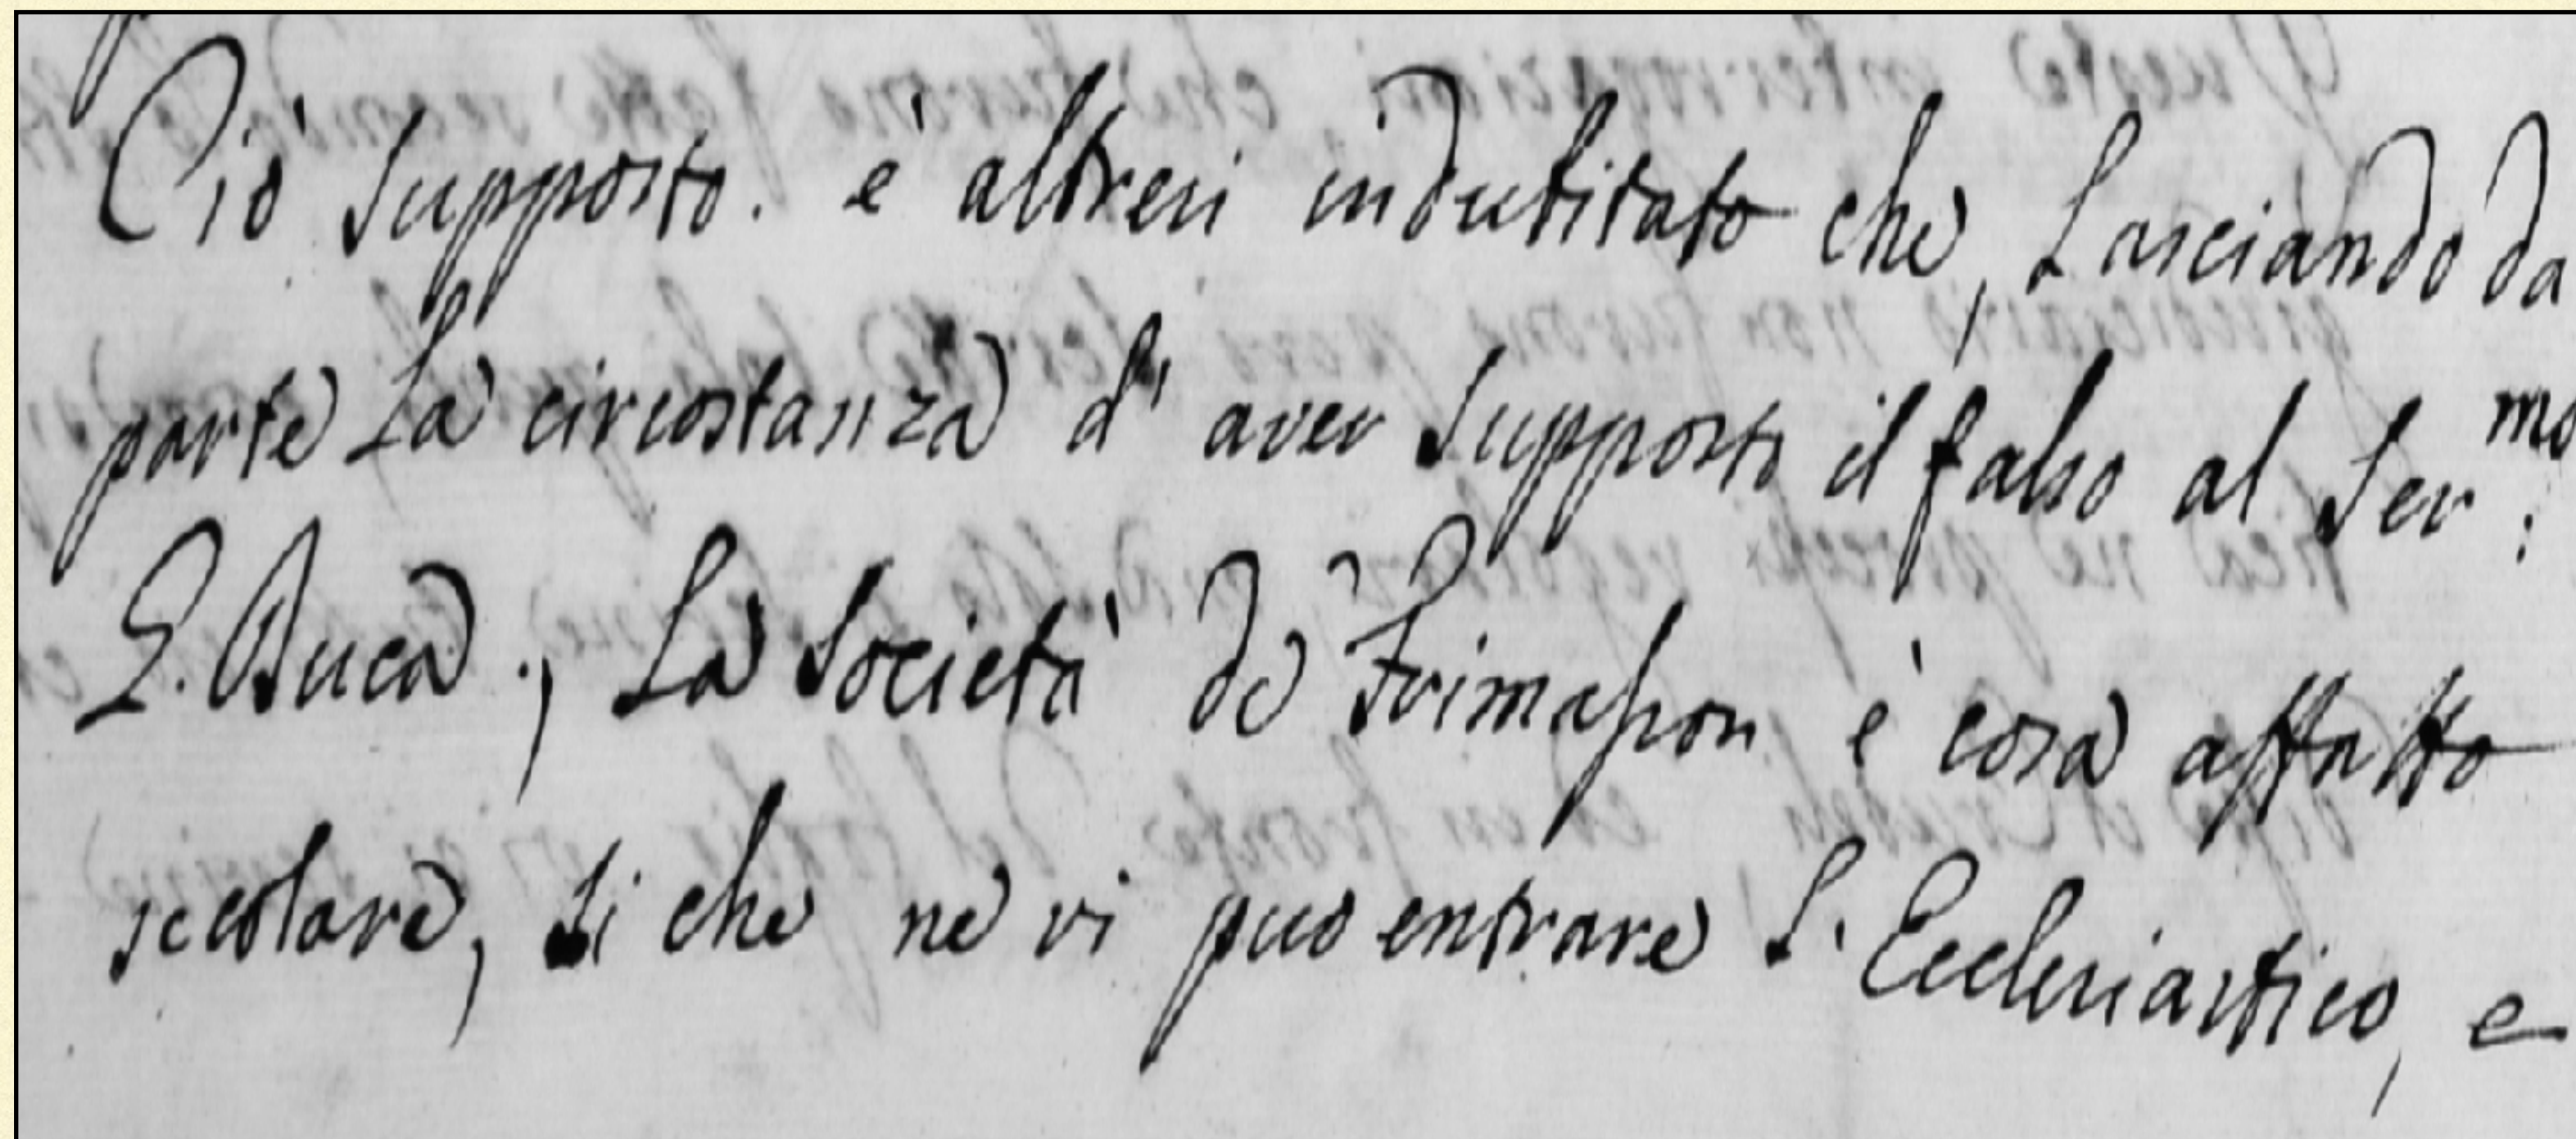 Ciò supposto. è altresi indubitato che, Lasciando da
parte La circostanza d' aver supposto il falso al Ser:mo
G. Duca., La Società de Frimasson è cosa affatto
secolare, si che ne vi puo entrare L'Ecclesiastico, e